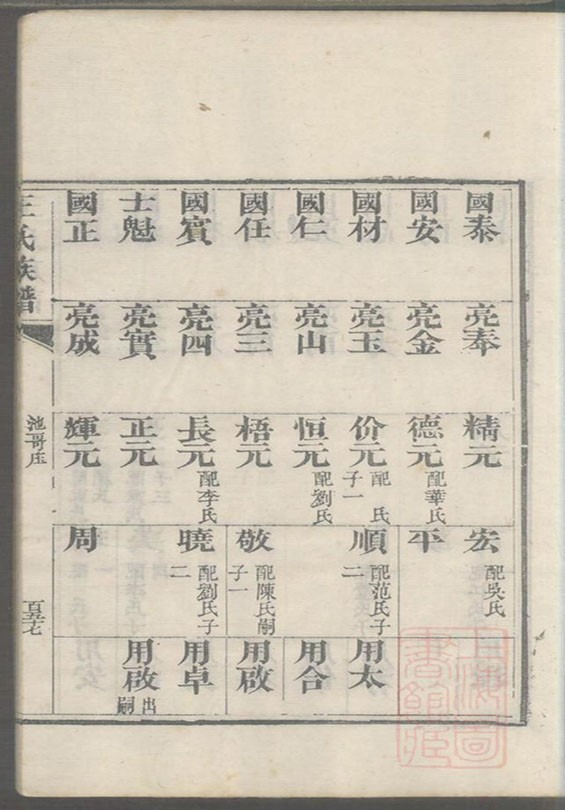 國泰 國安 國材 國仁 國任 國賓 士魁 國正
亮奉 亮金 亮玉 亮山 亮三 亮四 亮實 亮成
精元 德元配華氏 价元配 氏子一 恒元配劉氏 梧元 長元配李氏 正元 輝元
宏配吳氏 平 順配范氏子二 敬配陳氏嗣子一 曉配劉氏子二 周
用太 用合 用啟 用卓 用啟出嗣
王氏族譜
池哥庄
上海圖書館藏